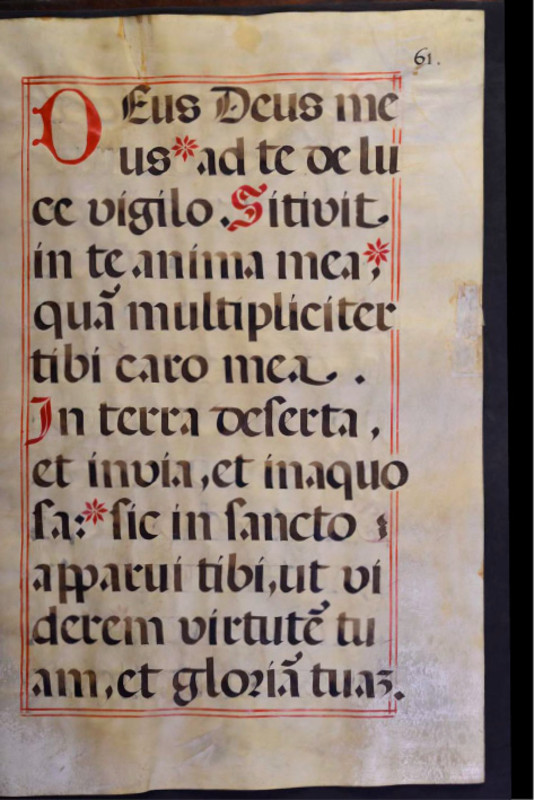 61.
DEus Deus me
us*ad te de lu
ce vigilo. Sitivit
in te anima mea,*
quã multipliciter
tibi caro mea.
In terra deserta,
et invia, et inaquo
sa:*sic in sancto
apparui tibi, ut vi
derem virtutẽ tu
am, et gloriã tuaʒ.